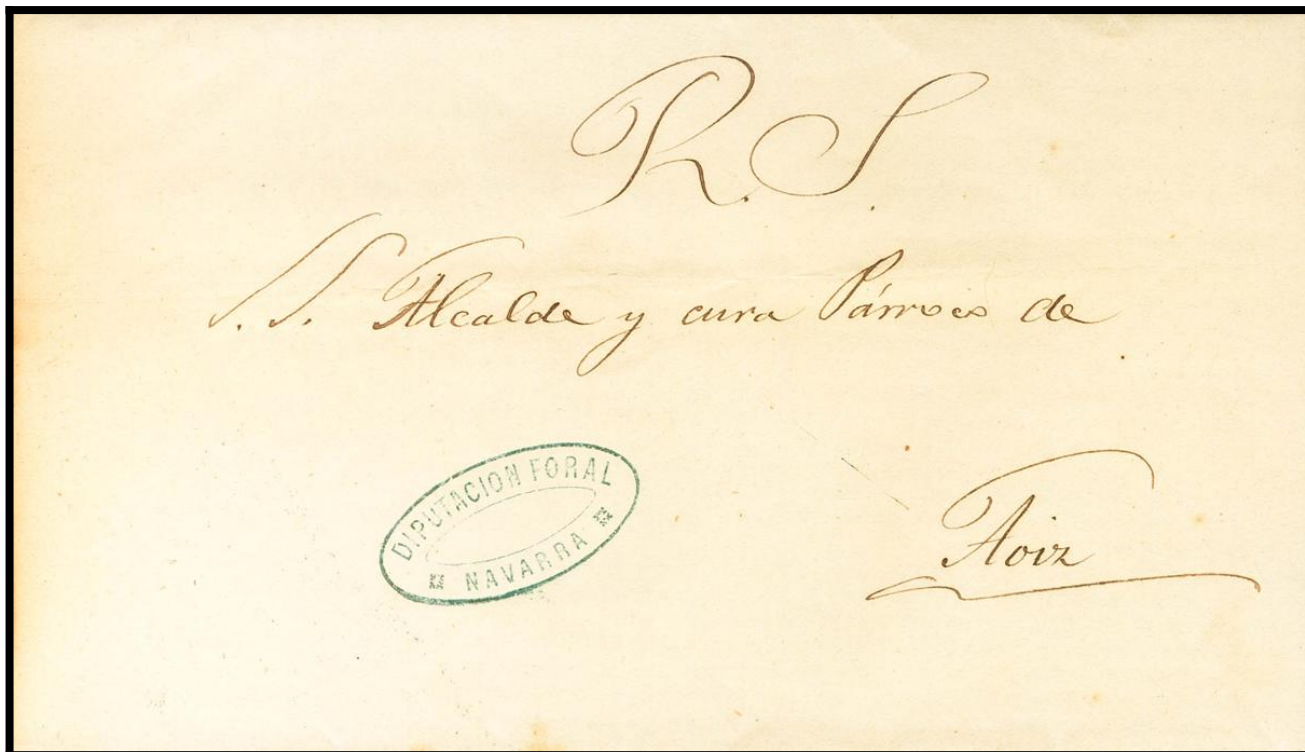 R. S.
S. S. Alcalde y cura Párroco de
Aoiz
DIPUTACION FORAL
NAVARRA